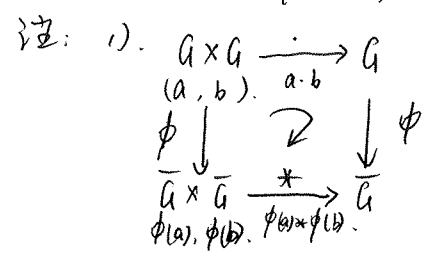 注: 1).
G × G ⟶ G
(a, b). a·b
ϕ ↓ ↓ ϕ
G̅ × G̅ ⟶ G̅
ϕ(a), ϕ(b). ϕ(a)*ϕ(b).